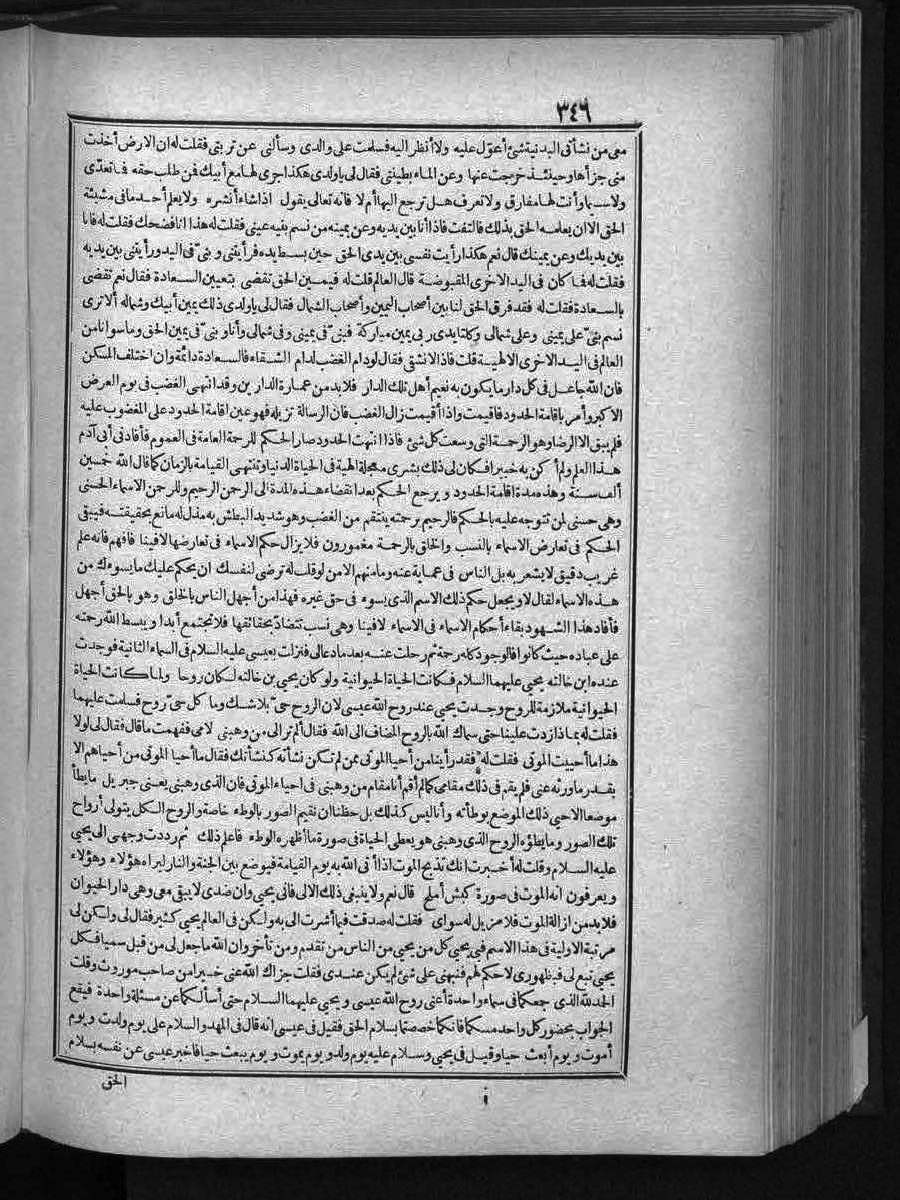 ٣٤٦
معى من نشأتى البدنية شئ أعوّل عليه ولا أنظر اليه فسلمت على والدى وسألنى عن تربتى فقلت له ان الارض أخذت
منى جزأها وحينئذ خرجت عنها وعن الماء بطينتى فقال لى ياولدى هكذا جرى لها مع أبيك فمن طلب حقه فما تعدّى
ولاسيما وأنت لها مفارق ولا تعرف هل ترجع اليها أم لا فانه تعالى يقول اذا شاء أنشره ولا يعلم أحد ما فى مشيئة
الحق الا ان يعلمه الحق بذلك فالتفت فاذا أنا بين يديه وعن يمينه من نسم بنيه عينى فقلت له هذا أنا فضحك فقلت له فأنا
بين يديك وعن يمينك قال نعم هكذا رأيت نفسى بين يدى الحق حين بسط يده فرأيتنى وبنىّ فى اليد ورأيتنى بين يديه
فقلت له فما كان فى اليد الاخرى المقبوضة قال العالم قلت له فيمين الحق تقضى بتعيين السعادة فقال نعم تقضى
بالسعادة فقلت له فقد فرق الحق لنا بين أصحاب اليمين وأصحاب الشمال فقال لى ياولدى ذلك يمين أبيك وشماله ألا ترى
نسم بنىّ على يمينى وعلى شمالى وكلتا يدى ربى يمين مباركة فبنىّ فى يمينى وفى شمالى وأنا وبنىّ فى يمين الحق وما سوانا من
العالم فى اليد الاخرى الالهية قلت فاذا لا نشقى فقال لو دام الغضب لدام الشقاء فالسعادة دائمة وان اختلف المسكن
فان اللّه جاعل فى كل دار ما يكون به نعيم أهل تلك الدار فلا بد من عمارة الدارين وقد انتهى الغضب فى يوم العرض
الاكبر وأمر باقامة الحدود فاقيمت واذا أقيمت زال الغضب فان الرسالة تزيله فهو عين اقامة الحدود على المغضوب عليه
فلم يبق الا الرضا وهو الرحمة التى وسعت كل شئ فاذا انتهت الحدود صار الحكم للرحمة العامة فى العموم فأفادنى أبى آدم
هذا العلم ولم أكن به خبيرا فكان لى ذلك بشرى معجلة الهية فى الحياة الدنيا وتنتهى القيامة بالزمان كما قال اللّه خمسين
ألف سنة وهذه مدة اقامة الحدود ويرجع الحكم بعد انقضاء هذه المدة الى الرحمن الرحيم وللرحمن الاسماء الحسنى
وهى حسنى لمن تتوجه عليه بالحكم فالرحيم برحمته ينتقم من الغضب وهو شديد البطش به مذل له مانع بحقيقته فيبقى
الحكم فى تعارض الاسماء بالنسب والخلق بالرحمة مغمورون فلا يزال حكم الاسماء فى تعارضها لا فينا فافهم فانه علم
غريب دقيق لا يشعر به بل الناس فى عماية عنه وما منهم الا من لو قلت له ترضى لنفسك ان يحكم عليك ما يسوءك من
هذه الاسماء لقال لا ويجعل حكم ذلك الاسم الذى يسوء فى حق غيره فهذا من أجهل الناس بالخلق وهو بالحق أجهل
فأفاد هذا الشهود بقاء أحكام الاسماء فى الاسماء لا فينا وهى نسب تتضادّ بحقائقها فلا تجتمع أبدا ويبسط اللّه رحمته
على عباده حيث كانوا فالوجود كله رحمة ثم رحلت عنه بعد ما دعا لى فنزلت بعيسى عليه السلام فى السماء الثانية فوجدت
عنده ابن خالته يحيى عليهما السلام فكانت الحياة الحيوانية ولو كان يحيى بن خالته لكان روحا ولما كانت الحياة
الحيوانية ملازمة للروح وجدت يحيى عند روح اللّه عيسى لان الروح حىّ بلاشك وما كل حىّ روح فسلمت عليهما
فقلت له بماذا زدت علينا حتى سماك اللّه بالروح المضاف الى اللّه فقال ألم تر الى من وهبنى لامى ففهمت ما قال فقال لى لولا
هذا ما أحييت الموتى فقلت له فقد رأينا من أحيا الموتى ممن لم تكن نشأته كنشأتك فقال ما أحيا الموتى من أحياهم الا
بقدر ما ورثه عنى فلم يقم فى ذلك مقامى كما لم أقم أنا مقام من وهبنى فى احياء الموتى فان الذى وهبنى يعنى جبريل ما يطأ
موضعا الا حيى ذلك الموضع بوطأته وأنا ليس كذلك بل حظنا ان نقيم الصور بالوطء خاصة والروح الكل يتولى أرواح
تلك الصور وما يطؤه الروح الذى وهبنى هو يعطى الحياة فى صورة ما أظهره الوطء فاعلم ذلك ثم رددت وجهى الى يحيى
عليه السلام وقلت له أخبرت انك تذبح الموت اذا أتى اللّه به يوم القيامة فيوضع بين الجنة والنار ليراه هؤلاء وهؤلاء
ويعرفون انه الموت فى صورة كبش أملح قال نعم ولا ينبغى ذلك الا لى فانى يحيى وان ضدى لا يبقى معى وهى دار الحيوان
فلا بد من ازالة الموت فلا مزيل له سواى فقلت له صدقت فيما أشرت الى به ولكن فى العالم يحيى كثير فقال لى ولكن لى
مرتبة الاولية فى هذا الاسم فبى يحيى كل من يحيى من الناس من تقدم ومن تأخر وان اللّه ما جعل لى من قبل سميا فكل
يحيى تبع لى فبظهورى لا حكم لهم فنبهنى على شئ لم يكن عندى فقلت جزاك اللّه عنى خيرا من صاحب موروث وقلت
الحمد للّه الذى جمعكما فى سماء واحدة أعنى روح اللّه عيسى ويحيى عليهما السلام حتى أسألكما عن مسئلة واحدة فيقع
الجواب بحضور كل واحد منكما فانكما خصصتما بسلام الحق فقيل فى عيسى انه قال فى المهد والسلام على يوم ولدت ويوم
أموت ويوم أبعث حيا وقيل فى يحيى وسلام عليه يوم ولد ويوم يموت ويوم يبعث حيا فاخبر عيسى عن نفسه بسلام
الحق